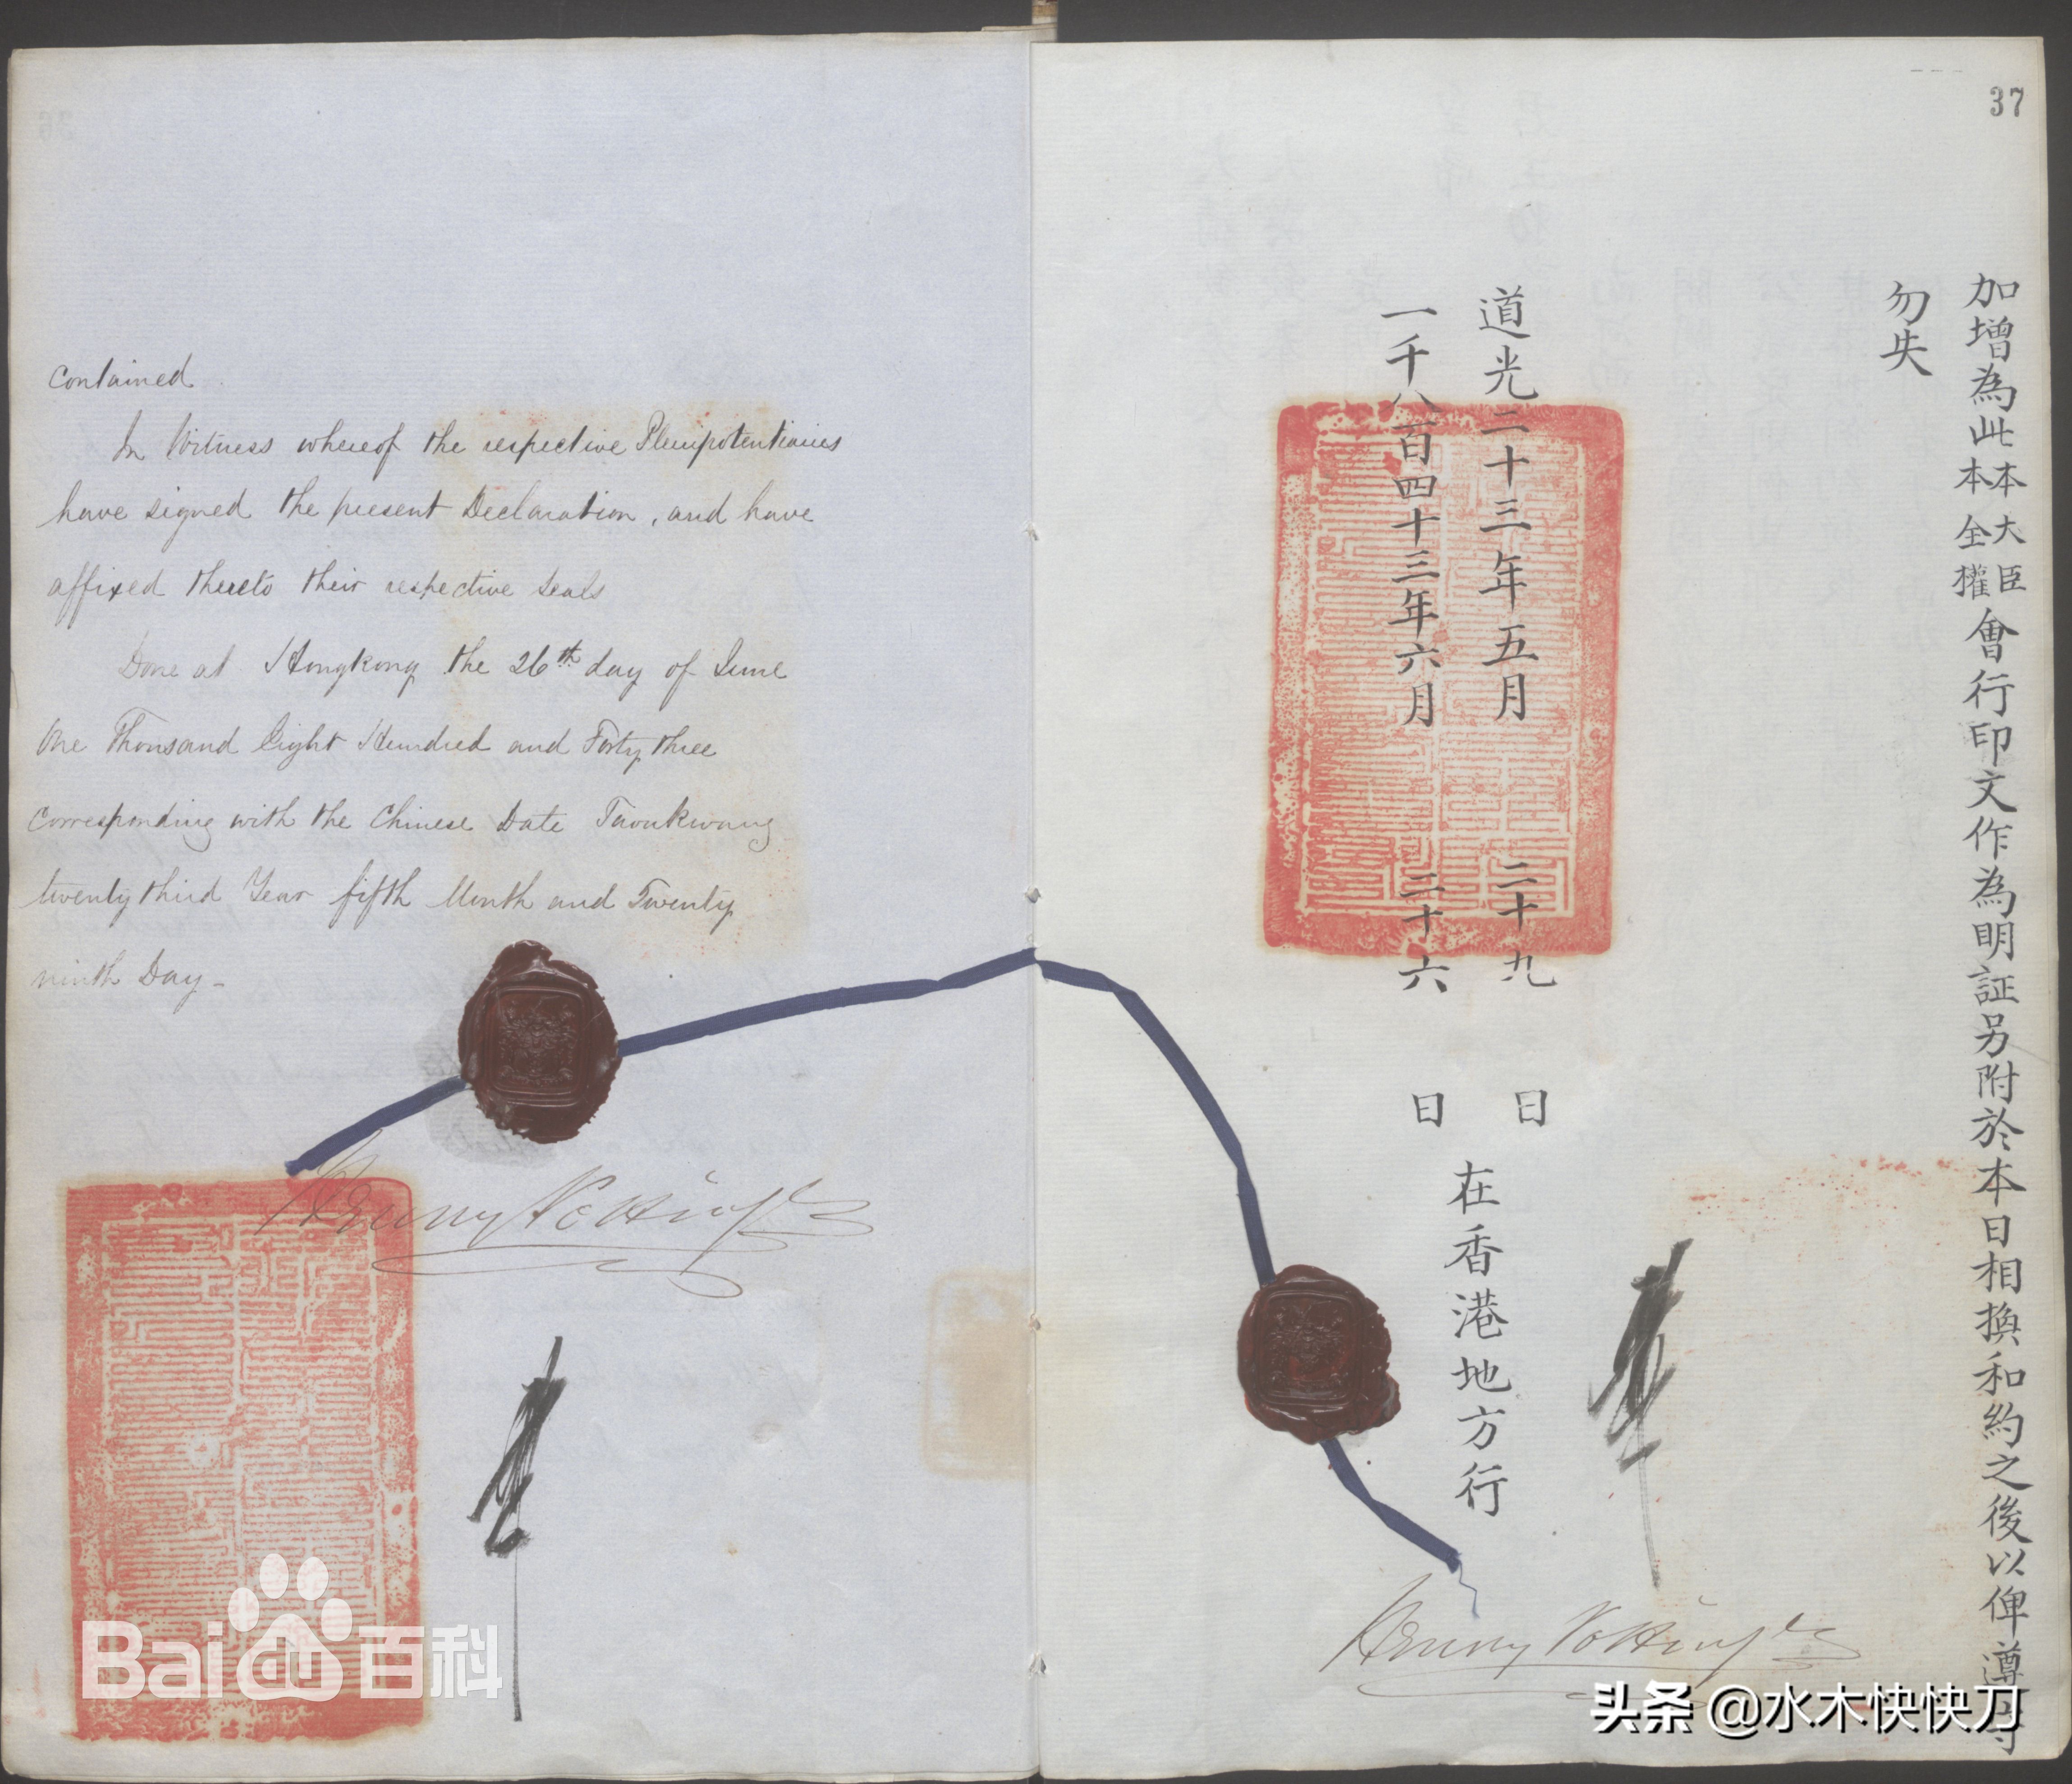 contained
In Witness whereof the respective Plenipotentiaries
have signed the present Declaration, and have
affixed thereto their respective Seals
Done at Hongkong the 26th day of June
One Thousand Eight Hundred and Forty three
corresponding with the Chinese Date Taoukwang
twenty third Year fifth Month and Twenty
ninth Day -
Henry Pottinger
37
加增為此本大臣本全權會行印文作為明証另附於本日相換和約之後以俾遵守
勿失
道光二十三年五月二十九日
一千八百四十三年六月二十六日
在香港地方行
Henry Pottinger
Bai du 百科
头条 @水木快快刀